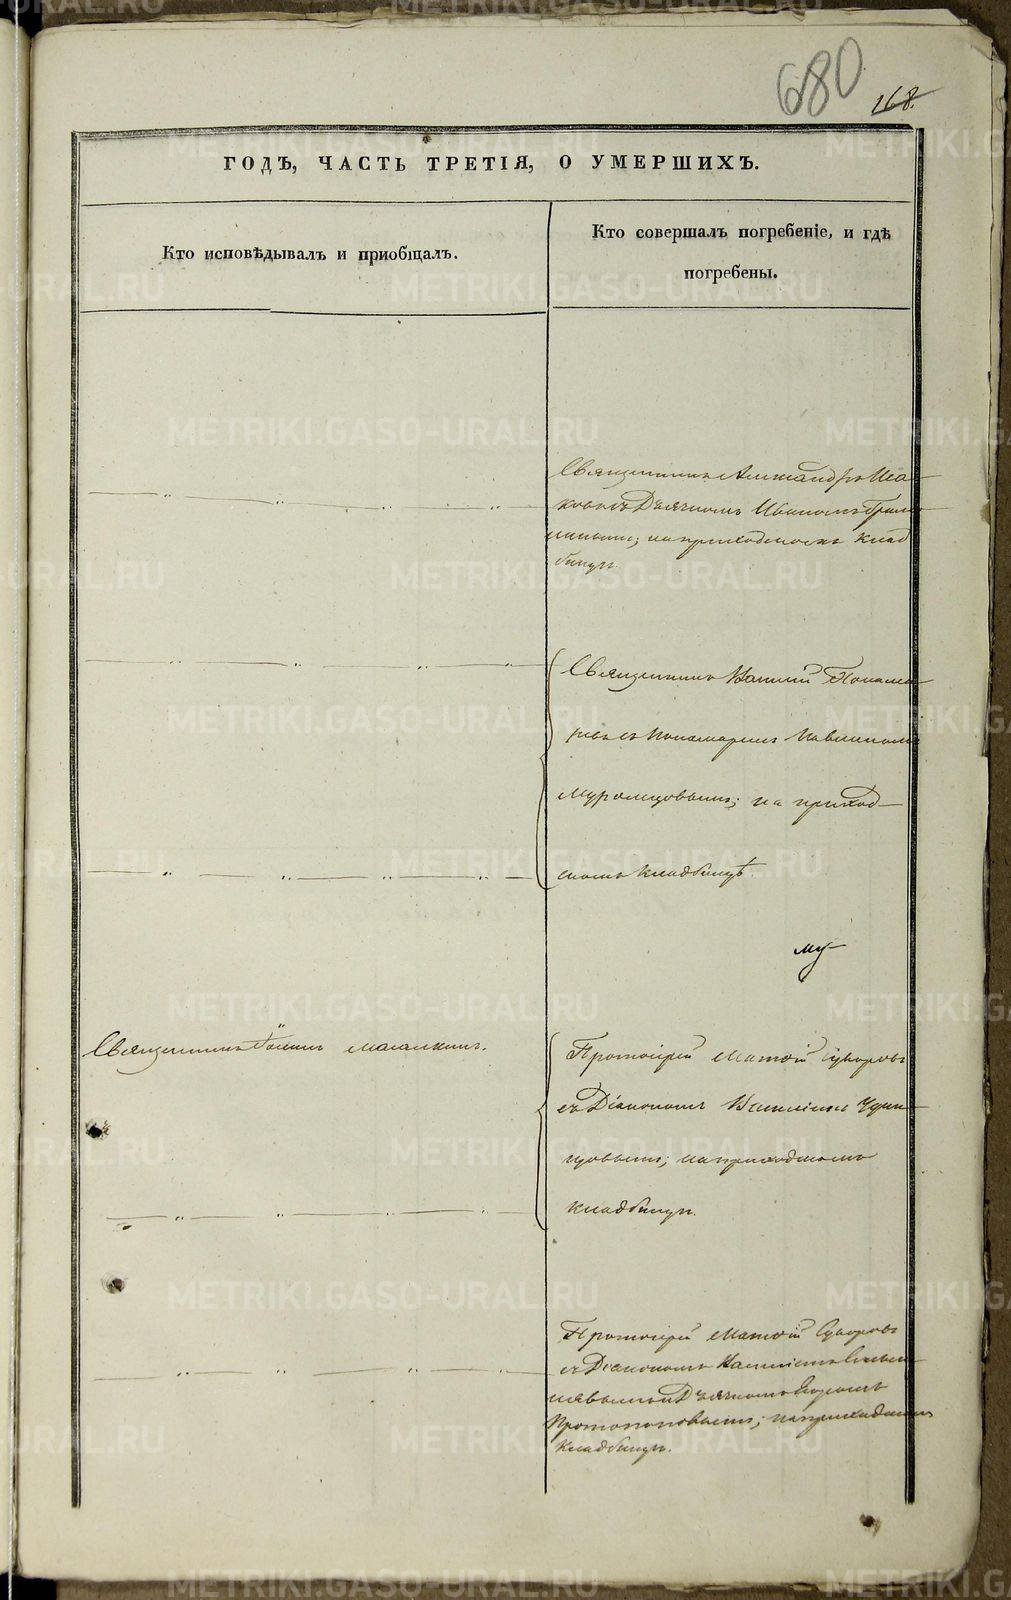 680
168.
ГОДѢ, ЧАСТЬ ТРЕТІЯ, О УМЕРШИХЪ.
Кто исповѣдывалъ и приобщалъ.
Кто совершалъ погребеніе, и гдѣ
погребены.
Священникъ Александръ
съ Дьячкомъ Иваномъ
на приходскомъ клад
бищѣ.
Священникъ Василій Понама-
ревъ съ Пономаремъ Павлиномъ
Муромцовымъ; на приход-
скомъ кладбищѣ.
му-
Священникъ
Протоіерей Матѳій Суворовъ
съ Діакономъ Василіемъ
цовымъ; на приходскомъ
кладбищѣ.
Протоіерей Матѳій Суворовъ
съ Діакономъ
Дьячкомъ Егоромъ
Протопоповымъ; на приходскомъ
кладбищѣ.
METRIKI.GASO-URAL.RU